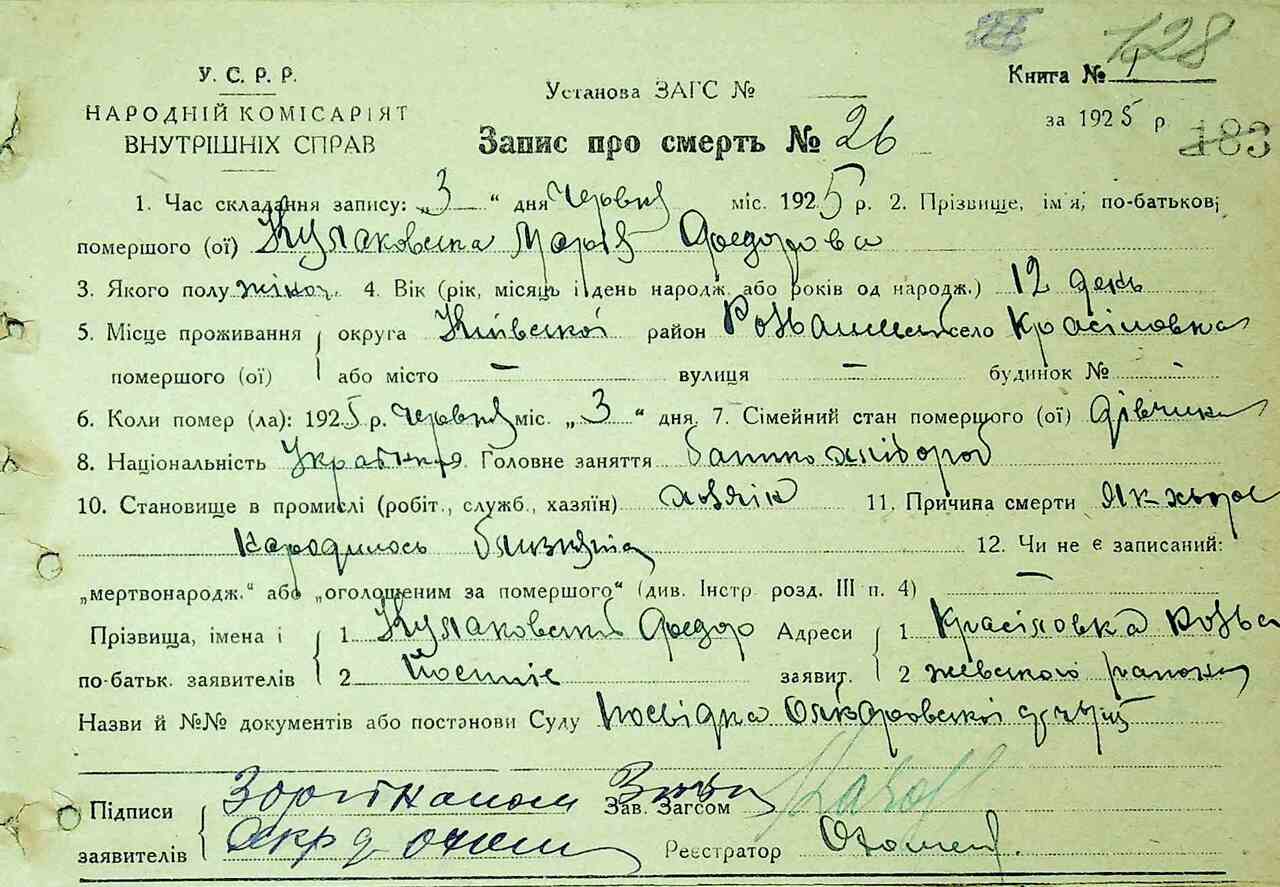 128
У. С. Р. Р.
НАРОДНІЙ КОМІСАРІЯТ
ВНУТРІШНІХ СПРАВ
Установа ЗАГС №
Книга № 1
за 1925 р
183
Запис про смерть № 26
1. Час складання запису: „3“ дня червня міс. 1925 р. 2. Прізвище, ім'я, по-батькові
помершого (ої) Кулаковська Марія Федорова
3. Якого полу жіноч. 4. Вік (рік, місяць і день народж. або років од народж.) 12 день
5. Місце проживання округа Київської район Розважев село Красіловка
помершого (ої) або місто — вулиця — будинок № -
6. Коли помер (ла): 1925 р. червня міс. „3“ дня. 7. Сімейний стан помершого (ої) дівчина
8. Національність Українка. Головне заняття батько хлібороб
10. Становище в промислі (робіт., служб., хазяїн) хозяїн 11. Причина смерти
народилось близнята 12. Чи не є записаний:
„мертвонародж.“ або „оголошеним за помершого“ (див. Інстр розд. III п. 4) —
Прізвища, імена і 1 Кулаковський Федор Адреси 1 Красіловка Розва
по-батьк. заявителів 2 заявит. 2 жевского района
Назви й №№ документів або постанови Суду посвідка
Підписи Зав. Загсом
заявителів Реєстратор